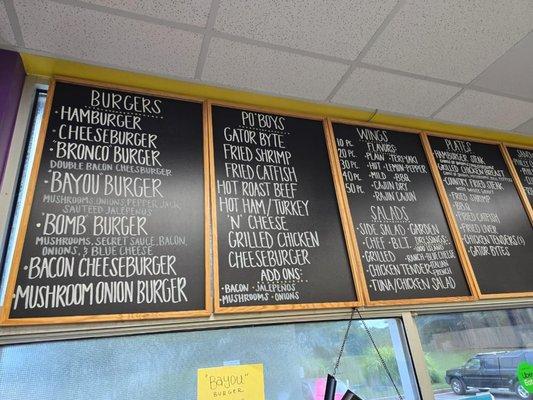 BURGERS
HAMBURGER
CHEESEBURGER
BRONCO BURGER
DOUBLE BACON CHEESEBURGER
BAYOU BURGER
MUSHROOMS, ONIONS, PEPPER JACK,
SAUTEED JALEPENOS
BOMB BURGER
MUSHROOMS, SECRET SAUCE, BACON,
ONIONS, & BLUE CHEESE
BACON CHEESEBURGER
MUSHROOM ONION BURGER
PO BOYS
GATOR BYTE
FRIED SHRIMP
FRIED CATFISH
HOT ROAST BEEF
HOT HAM/TURKEY
'N' CHEESE
GRILLED CHICKEN
CHEESEBURGER
ADD ONS:
BACON · JALEPENOS
MUSHROOMS · ONIONS
WINGS
10 PC.
20 PC.
30 PC.
40 PC.
50 PC.
FLAVORS:
PLAIN · TERIYAKI
HOT · LEMON-PEPPER
MILD · BBQ
CAJUN DRY
RAJIN CAJUN
SALADS
SIDE SALAD · GARDEN
CHEF · BLT
GRILLED
CHICKEN TENDER
TUNA/CHICKEN SALAD
DRESSINGS:
RANCH · BLUE CHEESE
ITALIAN
FRENCH
PLATES
HAMBURGER STEAK
GRILLED CHICKEN BREAST
COUNTRY FRIED STEAK
FRIED SHRIMP
FRIED CATFISH
FRIED LIVER
CHICKEN TENDERS
GATOR BYTES
"BAYOU"
BURGER